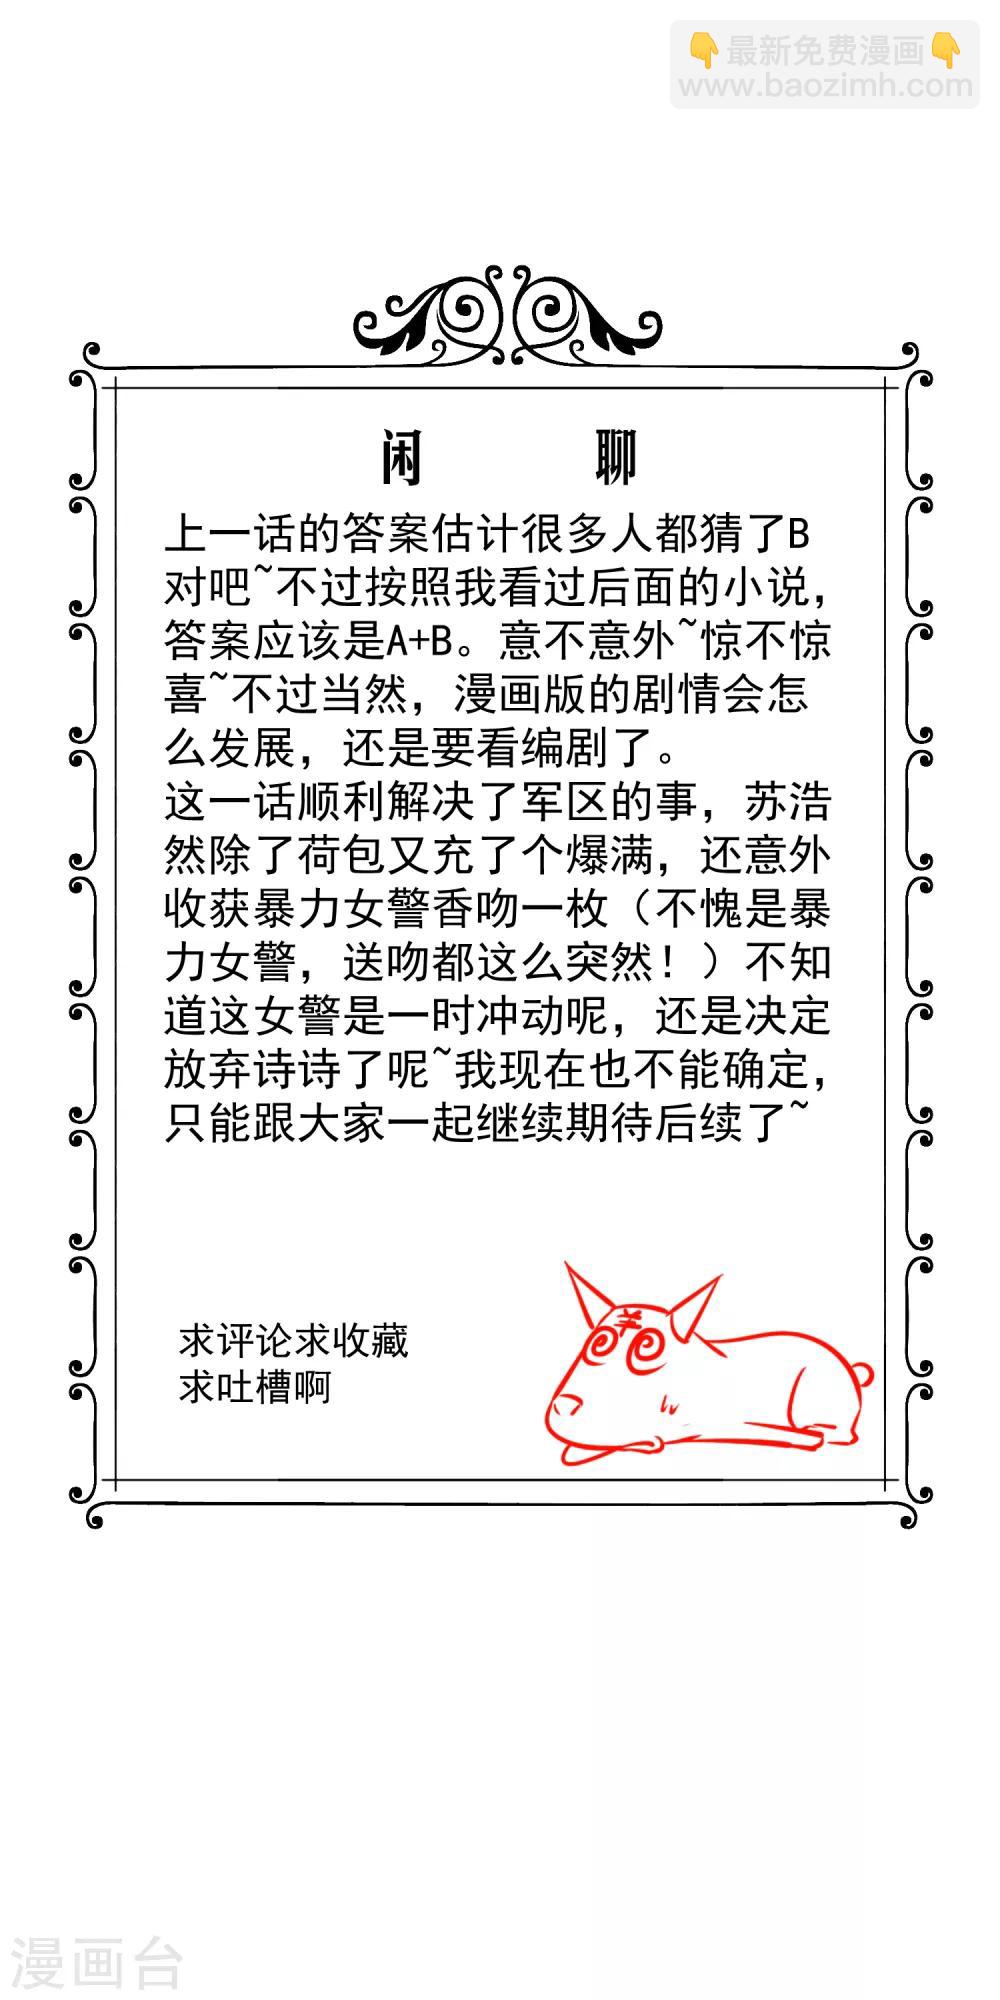 👇最新免费漫画👇
www.baozimh.com
闲 聊
上一话的答案估计很多人都猜了B
对吧~不过按照我看过后面的小说，
答案应该是A+B。意不意外~惊不惊
喜~不过当然，漫画版的剧情会怎
么发展，还是要看编剧了。
这一话顺利解决了军区的事，苏浩
然除了荷包又充了个爆满，还意外
收获暴力女警香吻一枚（不愧是暴
力女警，送吻都这么突然！）不知
道这女警是一时冲动呢，还是决定
放弃诗诗了呢~我现在也不能确定，
只能跟大家一起继续期待后续了~
求评论求收藏
求吐槽啊
漫画台